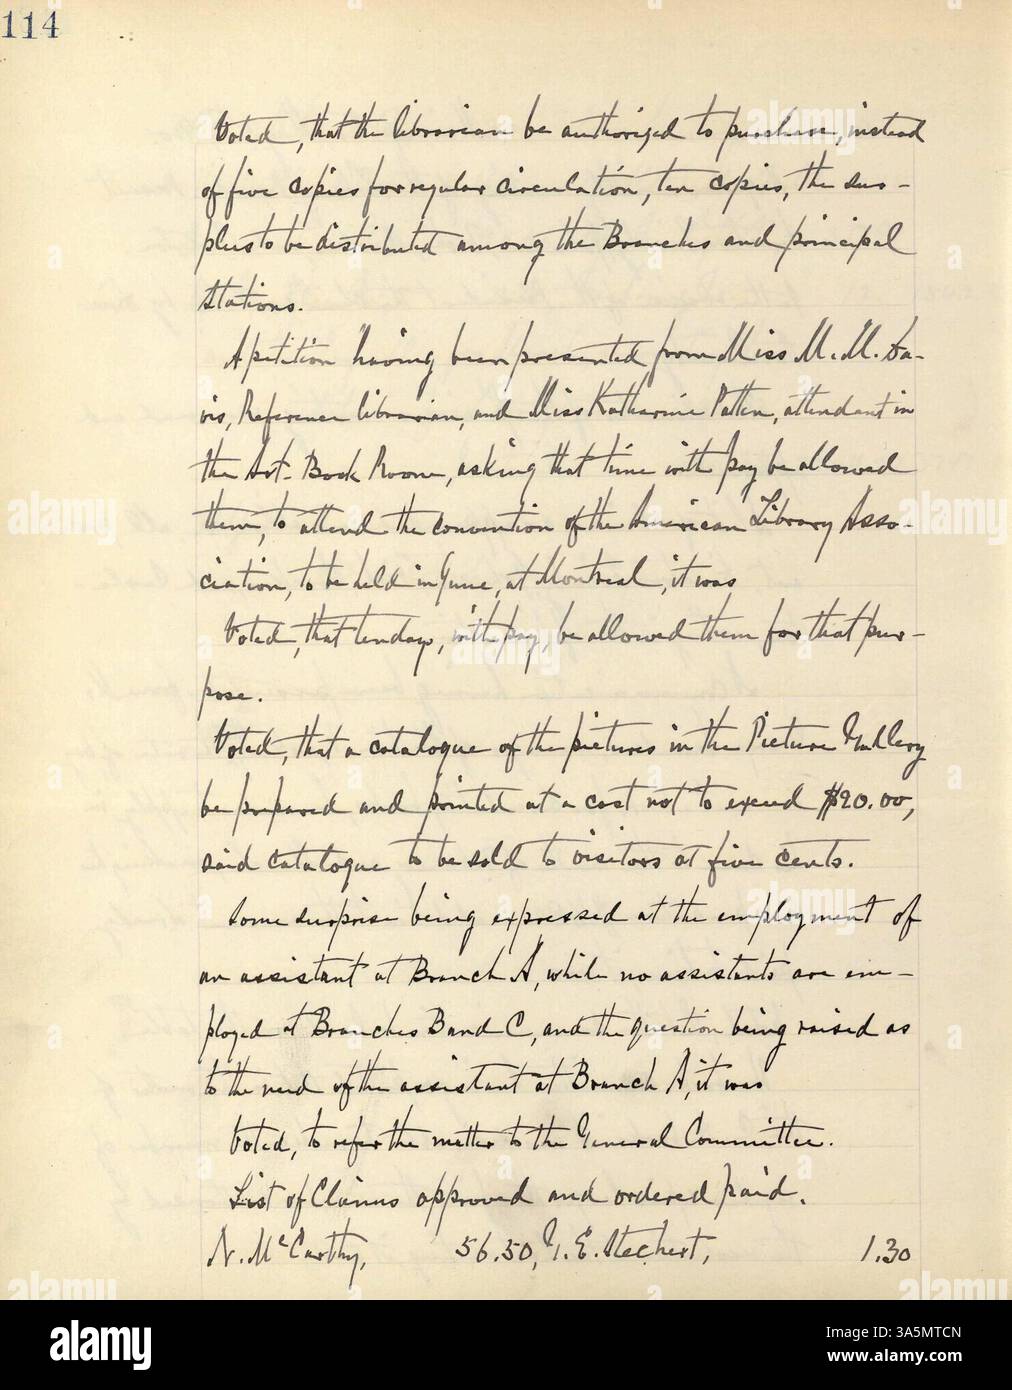 114
Voted, that the librarian be authorized to purchase, instead
of five copies for regular circulation, ten copies, the sur-
plus to be distributed among the Branches and principal
Stations.
A petition having been presented from Miss M. M. Da-
vis, Reference librarian, and Miss Katharine Patten, attendant in
the Art-Book Room, asking that time with pay be allowed
them, to attend the convention of the American Library Asso-
ciation, to be held in June, at Montreal, it was
Voted, that ten days, with pay, be allowed them for that pur-
pose.
Voted, that a catalogue of the pictures in the Picture Gallery
be prepared and printed at a cost not to exceed $20.00,
said catalogue to be sold to visitors at five cents.
Some surprise being expressed at the employment of
an assistant at Branch A, while no assistants are em-
ployed at Branches B and C, and the question being raised as
to the need of the assistant at Branch A, it was
Voted, to refer the matter to the General Committee.
List of Claims approved and ordered paid.
N. McCarthy, 56.50, G. E. Stechert, 1.30
alamy
Image ID: 3A5MTCN
www.alamy.com